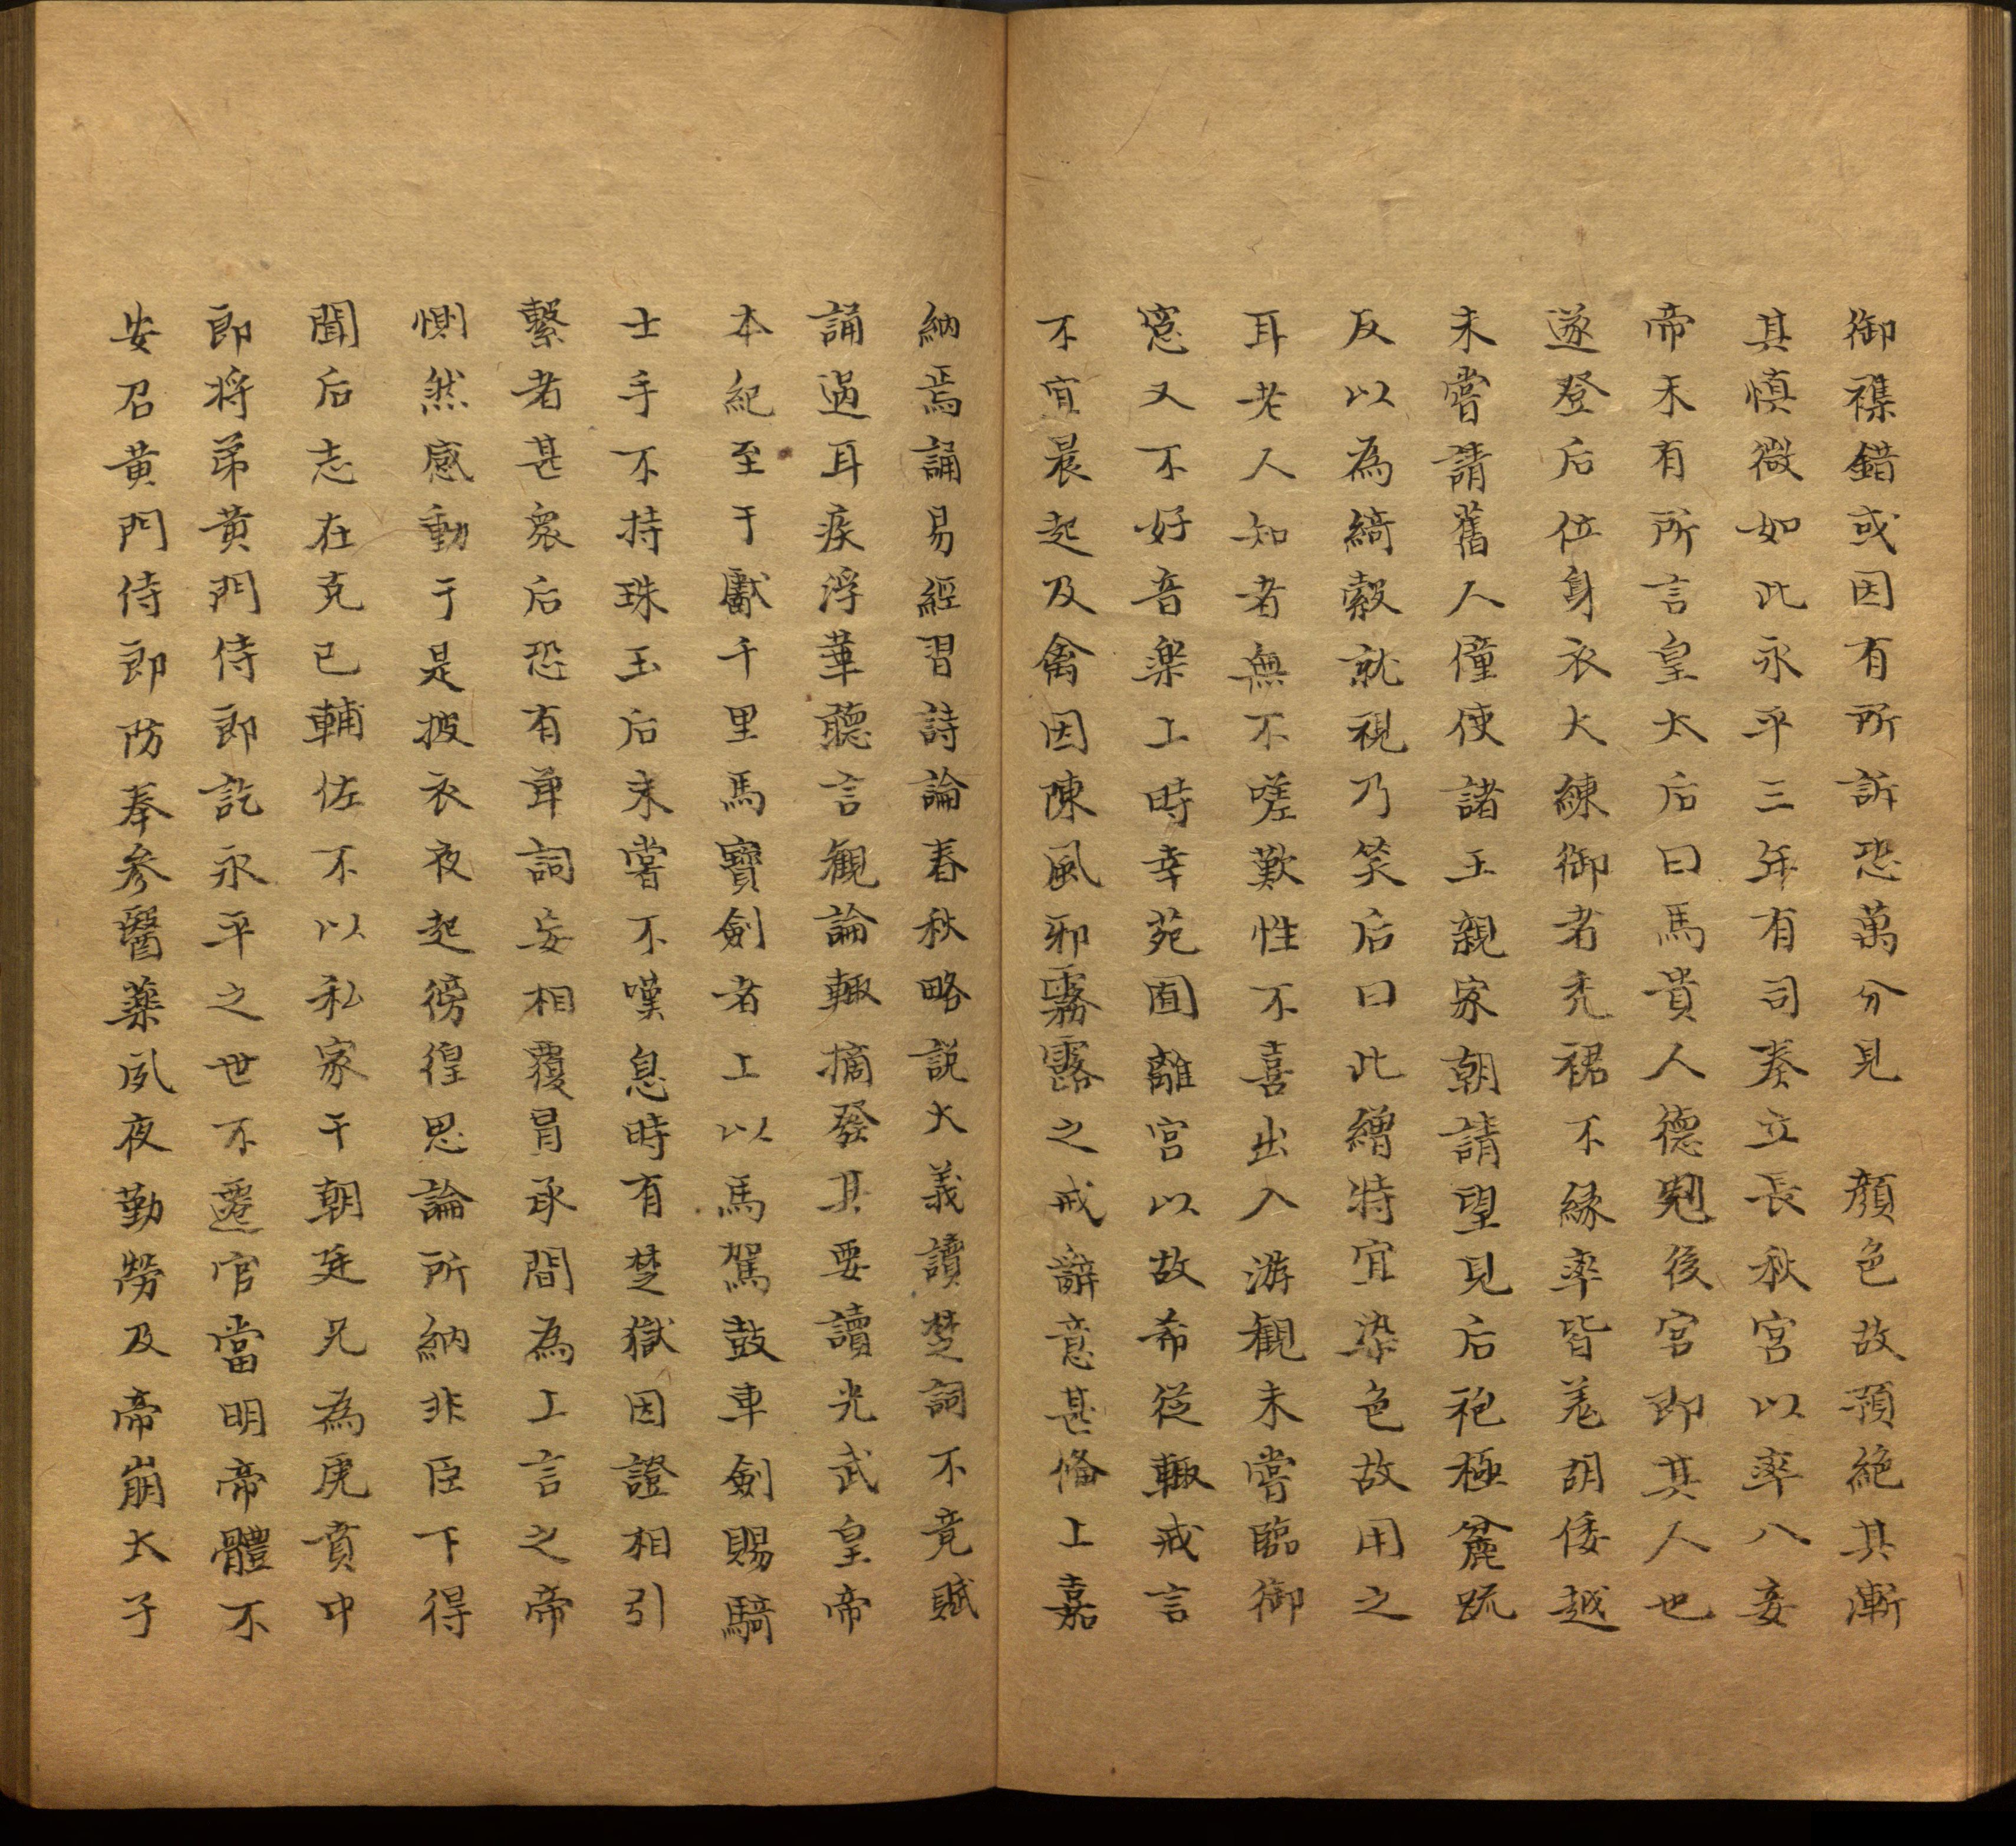 御襍錯或因有所訴恐萬分見　顔色故預絶其漸
其慎微如此永平三年有司奏立長秋宮以率八妾
帝未有所言皇太后曰馬貴人德冠後宮即其人也
遂登后位身衣大練御者禿裙不緣率皆羌胡倭越
未嘗請舊人僮使諸王親家朝請望見后袍極麄踈
反以為綺縠就視乃笑后曰此繒特宜染色故用之
耳老人知者無不嗟歎性不喜出入游觀未嘗臨御
窓又不好音樂上時幸苑囿離宮以故希從輙戒言
不宜晨起及禽因陳風邪霧露之戒辭意甚俻上嘉
納焉誦易經習詩論春秋略説大義讀楚詞不竟賦
誦過耳疾浮華聽言觀論輙摘發其要讀光武皇帝
本紀至于獻千里馬寶劍者上以馬駕鼓車劍賜騎
士手不持珠玉后未嘗不嘆息時有楚獄因證相引
繫者甚衆后恐有單詞妄相覆冒承間為上言之帝
惻然感動于是披衣夜起徬徨思論所納非臣下得
聞后志在克己輔佐不以私家干朝廷兄為虎賁中
郎將弟黄門侍郎訖永平之世不遷官當明帝體不
安召黄門侍郎防奉參醫藥夙夜勤勞及帝崩太子